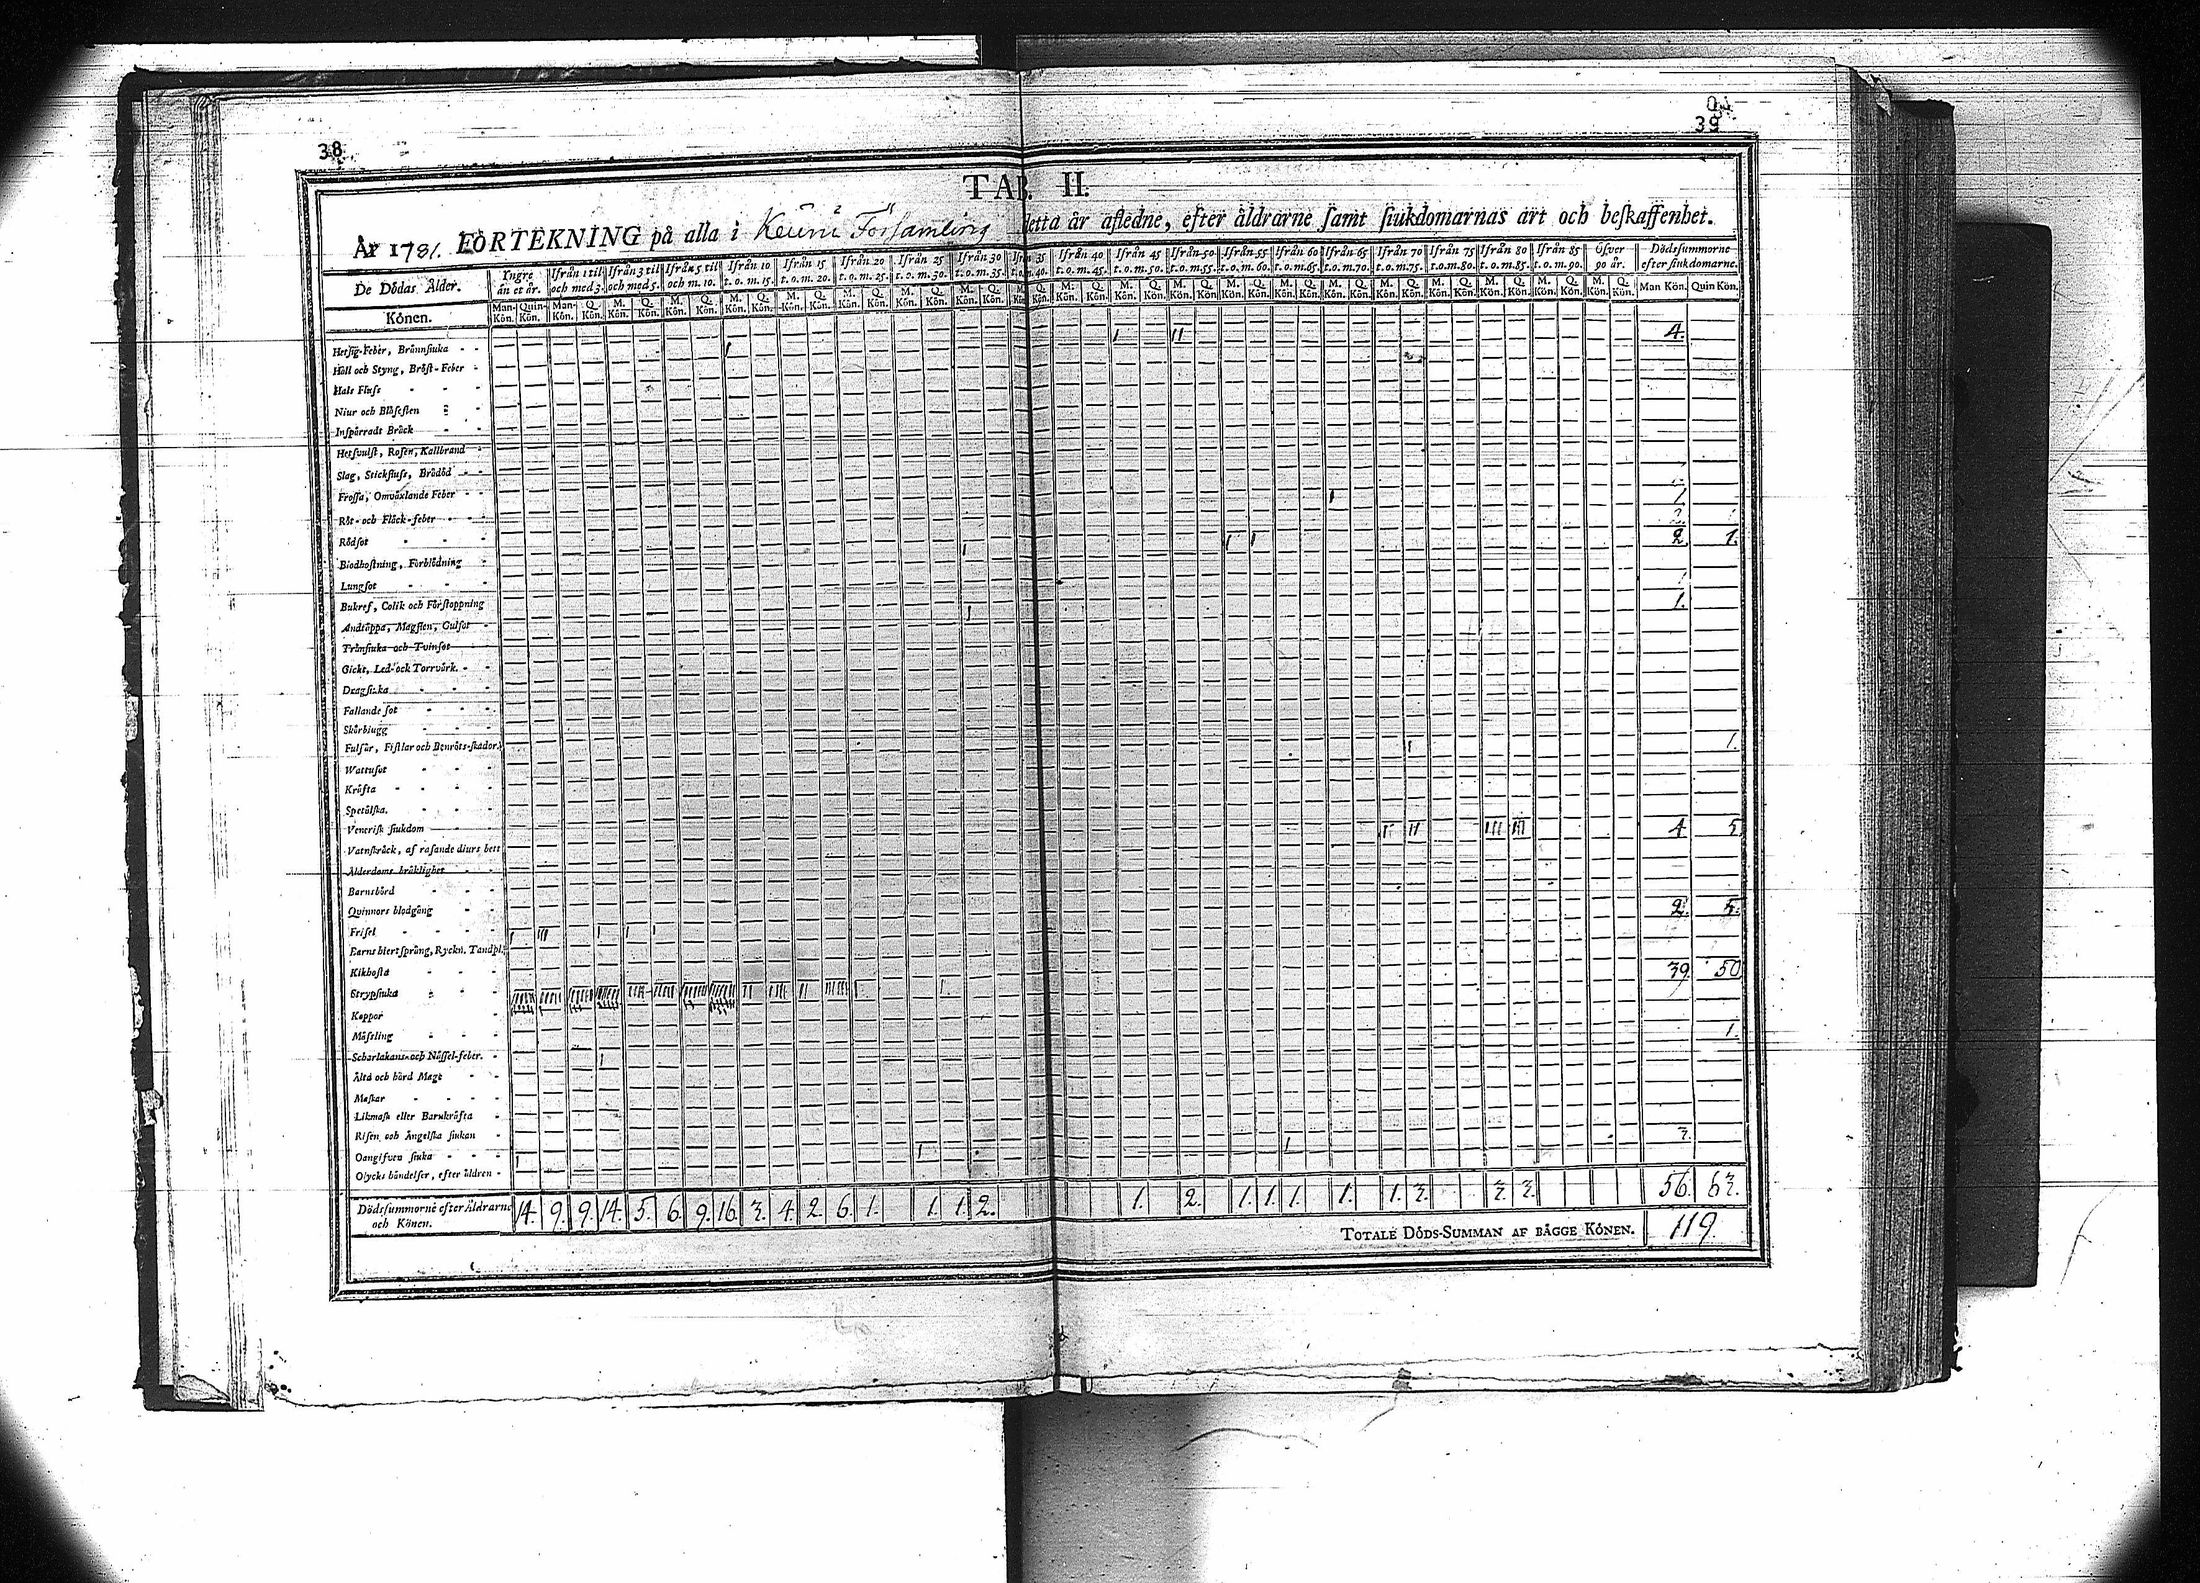 38
39
TAB. II.
År 1781. FÖRTEKNING på alla i Keuru Församling detta år afledne, efter åldrarne samt siukdomarnas art och beskaffenhet.
De Dödas Ålder. Yngre än et år. Ifrån 1 til och med 3. Ifrån 3 til och med 5. Ifrån 5 til och m. 10. Ifrån 10 t. o. m. 15. Ifrån 15 t. o. m. 20. Ifrån 20 t. o. m. 25. Ifrån 25 t. o. m. 30. Ifrån 30 t. o. m. 35. Ifrån 35 t. o. m. 40. Ifrån 40 t. o. m. 45. Ifrån 45 t. o. m. 50. Ifrån 50 t. o. m. 55. Ifrån 55 t. o. m. 60. Ifrån 60 t. o. m. 65. Ifrån 65 t. o. m. 70. Ifrån 70 t. o. m. 75. Ifrån 75 t. o. m. 80. Ifrån 80 t. o. m. 85. Ifrån 85 t. o. m. 90. Öfver 90 år. Dödssummorne efter siukdomarne.
Könen. Man-Kön. Quin-Kön. Man-Kön. Q. Kön. M. Kön. Q. Kön. M. Kön. Q. Kön. M. Kön. Q. Kön. M. Kön. Q. Kön. M. Kön. Q. Kön. M. Kön. Q. Kön. M. Kön. Q. Kön. M. Kön. Q. Kön. M. Kön. Q. Kön. M. Kön. Q. Kön. M. Kön. Q. Kön. M. Kön. Q. Kön. M. Kön. Q. Kön. M. Kön. Q. Kön. M. Kön. Q. Kön. M. Kön. Q. Kön. M. Kön. Q. Kön. M. Kön. Q. Kön. M. Kön. Q. Kön. Man Kön. Quin Kön.
Hetsig-Feber, Brännsiuka
Håll och Styng, Bröst-Feber 4.
Hals Fluss
Niur och Blåsesten
Inspärradt Bråck
Hetsvulst, Rosen, Kallbrand
Slag, Stickfluss, Brådöd
Frossa, Omväxlande Feber
Röt- och Fläck-feber
Rödsot
Blodhostning, Förblödning 2. 1.
Lungsot
Bukref, Colik och Förstoppning
Andtäppa, Magsten, Gulsot 1.
Trånsiuka och Tvinsot
Gickt, Led- ock Torrvärk.
Dragsiuka
Fallande sot
Skörbiugg
Fulsår, Fistlar och Benröts-skador.
Wattusot 1.
Kräfta
Spetälska.
Venerisk siukdom
Vatnskräck, af rasande diurs bett
Ålderdoms bräklighet 4 5
Barnsbörd
Quinnors blodgång
Frisel
Barns hiertsprång, Ryckn. Tandpl. 2. 5.
Kikhosta
Strypsiuka
Koppor 39. 50
Mässling
Scharlakans- och Nässel-feber. 1.
Ältå och hård Mage
Maskar
Likmask eller Barnkräfta
Risen och Ängelska siukan
Oangifven siuka
Olycks händelser, efter åldren 3.
Dödssummorne efter Åldrarne och Könen. 14. 9. 9. 14. 5. 6. 9. 16. 3. 4. 2. 6. 1. 1. 1. 2. 1. 2. 1. 1. 1. 1. 1. 3. 3. 3. 56. 63.
TOTALE DÖDS-SUMMAN AF BÅGGE KÖNEN. 119.